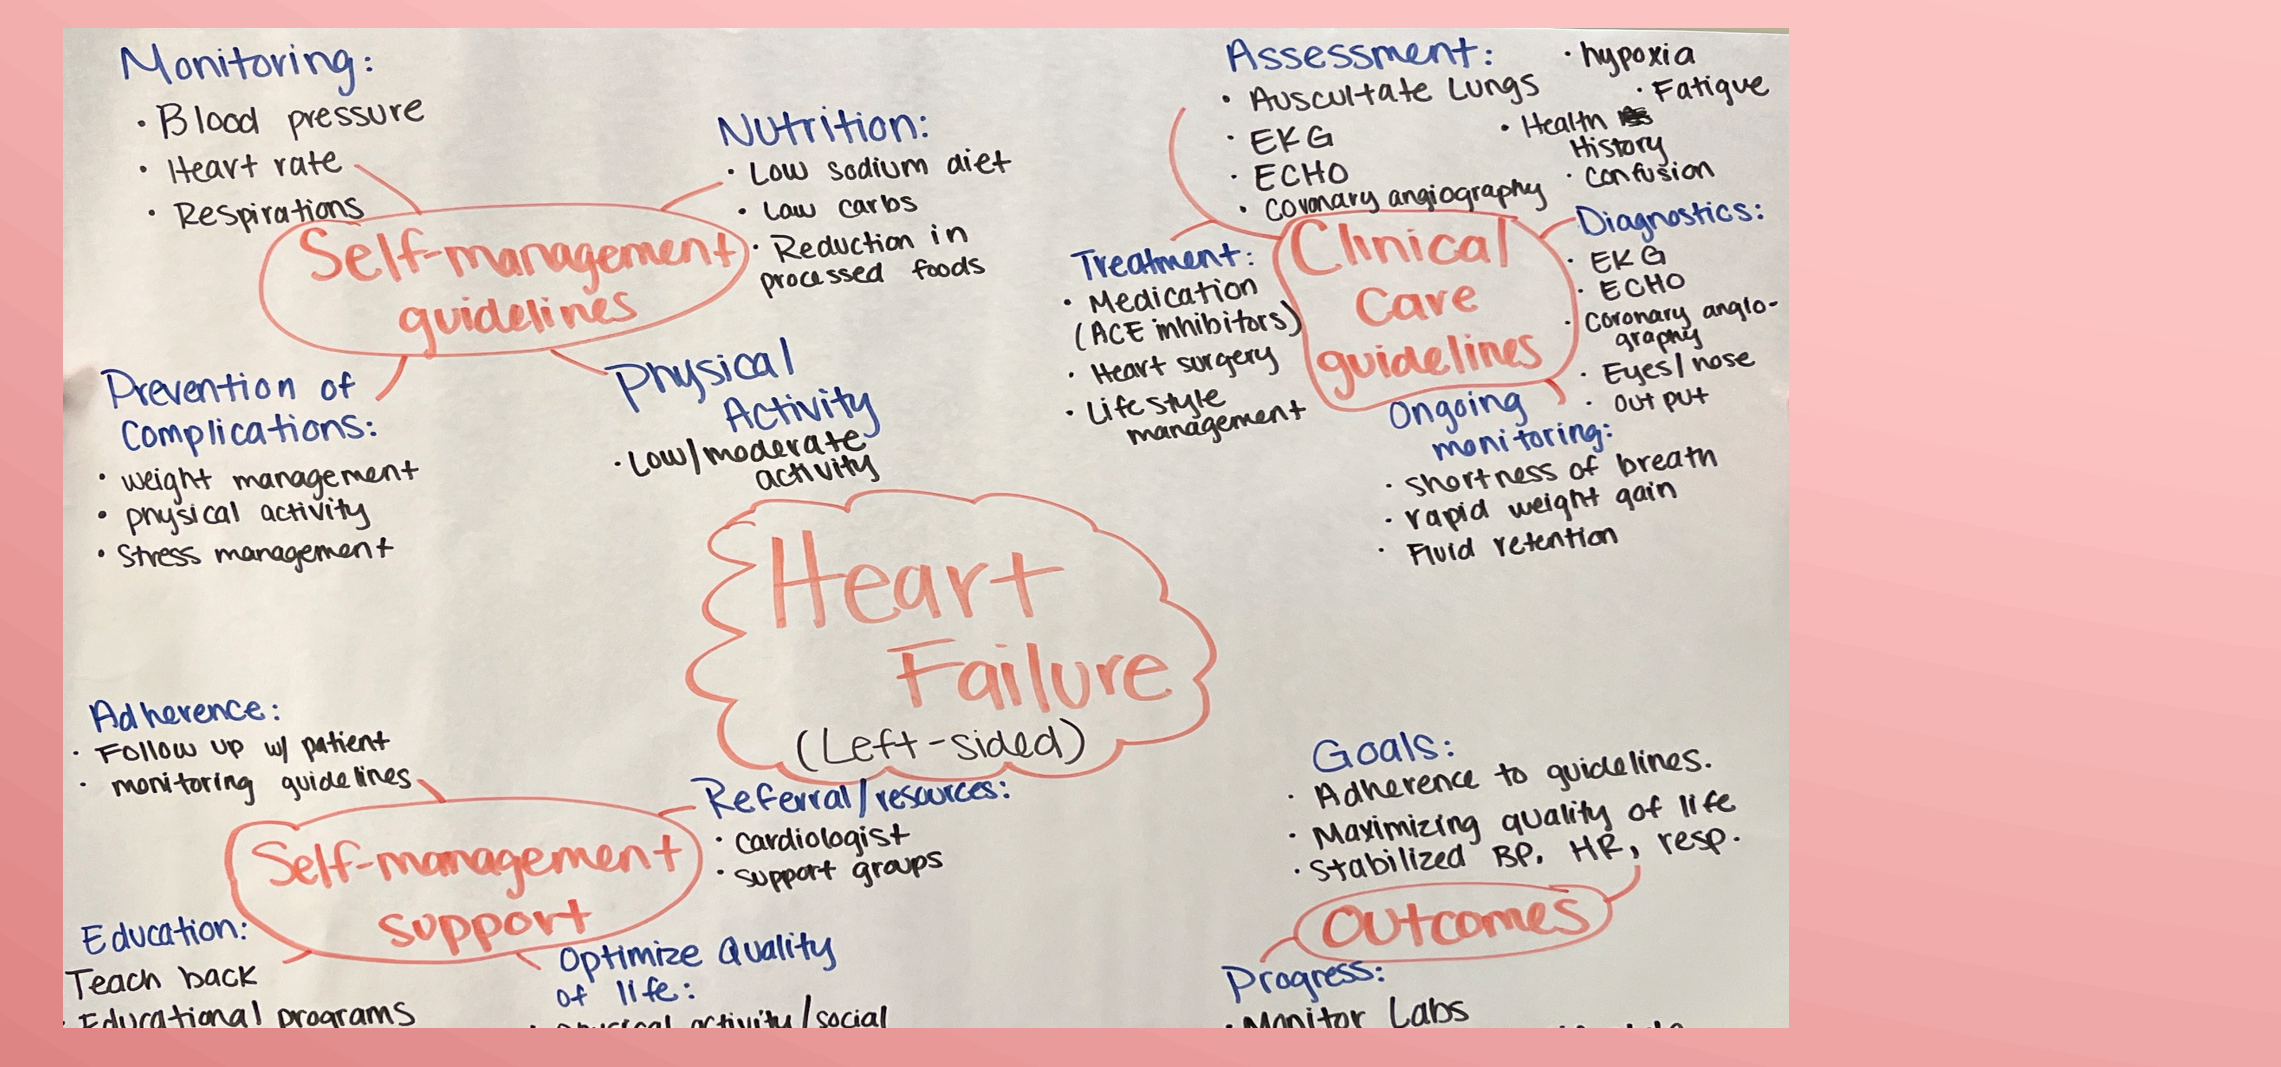 Monitoring:
• Blood pressure
• Heart rate
• Respirations
Nutrition:
• Low sodium diet
• Low carbs
• Reduction in
processed foods
Self-management
guidelines
Prevention of
Complications:
• weight management
• physical activity
• Stress management
Physical
Activity
• Low/moderate
activity
Assessment:
• Auscultate Lungs
• EKG
• ECHO
• Coronary angiography
• hypoxia
• Fatigue
• Health
History
• Confusion
Clinical
Care
guidelines
Treatment:
• Medication
(ACE inhibitors)
• Heart surgery
• Lifestyle
management
Diagnostics:
• EKG
• ECHO
• Coronary anglo-
graphy
• Eyes/nose
• output
Ongoing
monitoring:
• shortness of breath
• rapid weight gain
• Fluid retention
Heart
Failure
(Left-sided)
Adherence:
• Follow up w/ patient
• monitoring guidelines
Self-management
support
Referral/resources:
• cardiologist
• support groups
Education:
Teach back
• Educational programs
Optimize Quality
of life:
• physical activity/social
Goals:
• Adherence to guidelines.
• Maximizing quality of life
• Stabilized BP, HR, resp.
Outcomes
Progress:
• Monitor Labs